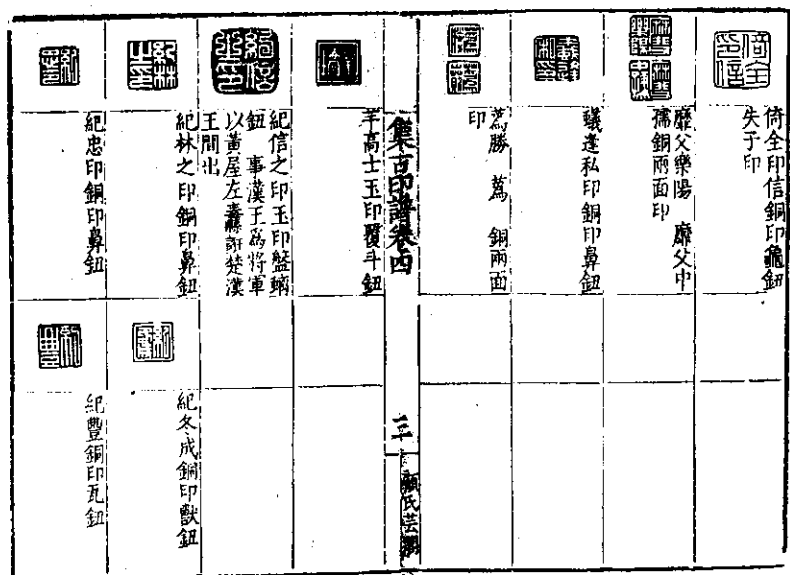 倚全印信銅印龜鈕
失子印
靡父樂陽　靡父中
孺銅兩面印
蟻逢私印銅印鼻鈕
蔿勝　蔿　銅兩面
印
集古印譜卷四
三
顧氏芸閣
羊高士玉印覆斗鈕
紀信之印玉印盤螭
鈕　事漢王爲將軍
以黃屋左纛誑楚漢
王間出
紀林之印銅印鼻鈕
紀忠印銅印鼻鈕
紀冬成銅印獸鈕
紀豐銅印瓦鈕